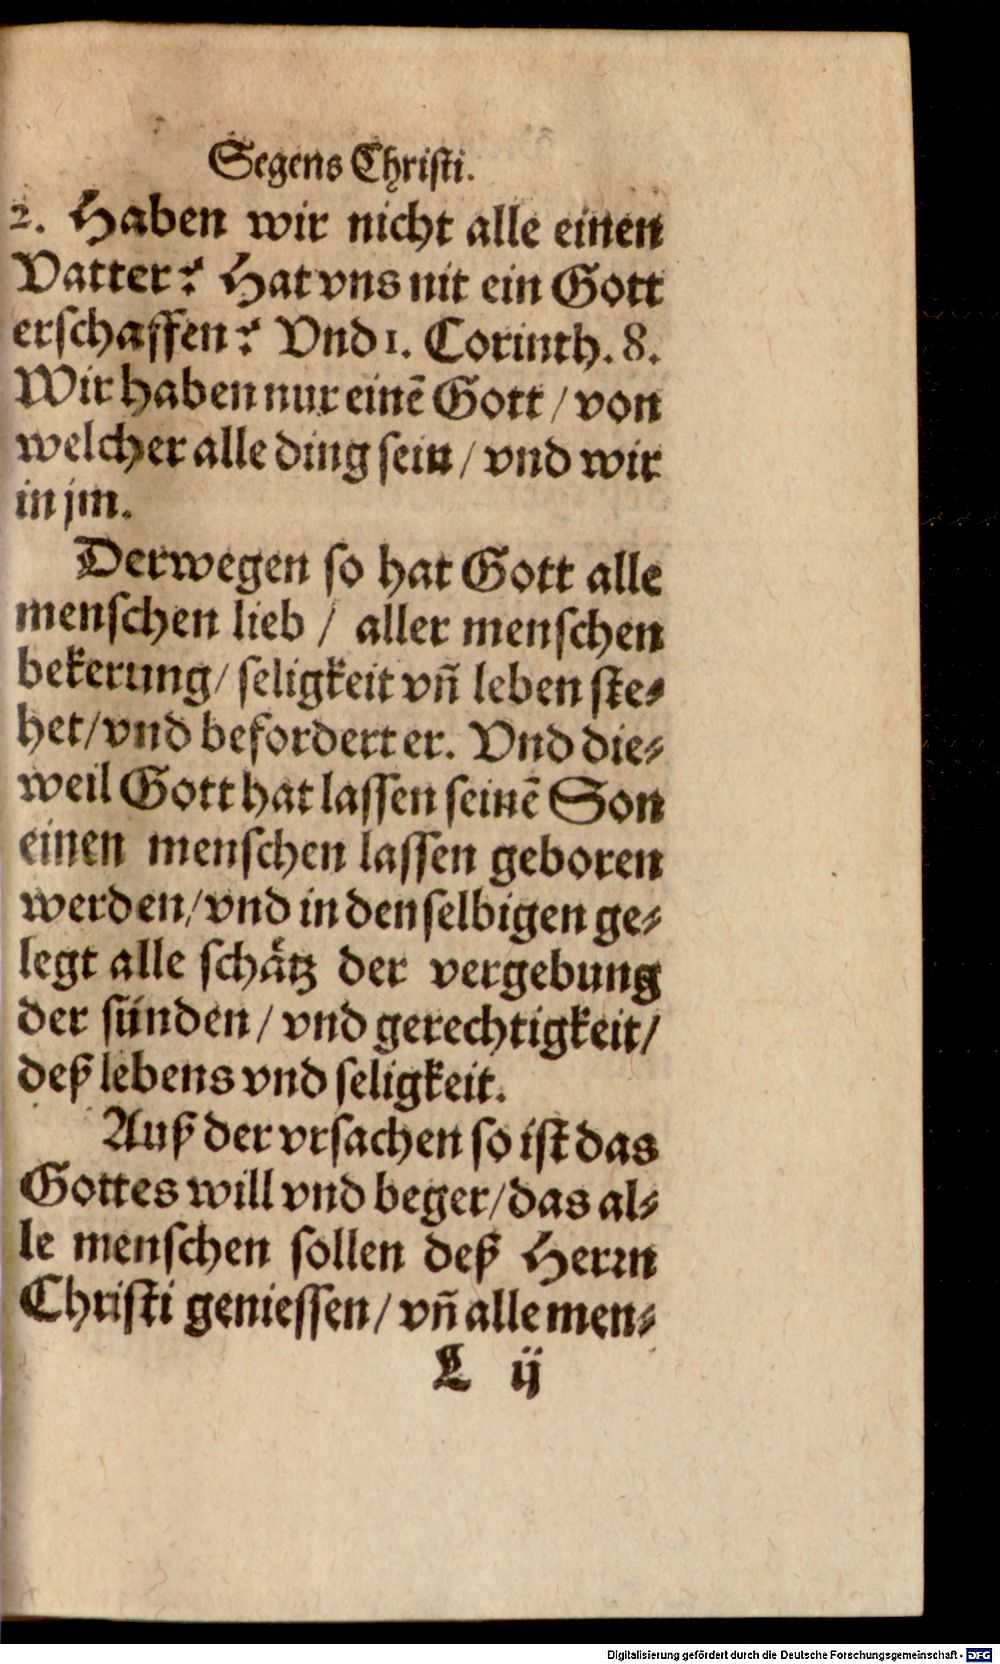 Segens Christi.
2. Haben wir nicht alle einen
Vatter? Hat vns nit ein Gott
erschaffen? Vnd 1. Corinth. 8.
Wir haben nur einē Gott / von
welcher alle ding sein / vnd wir
in jm.
Derwegen so hat Gott alle
menschen lieb / aller menschen
bekerung / seligkeit vñ leben ste⸗
het / vnd befordert er. Vnd die⸗
weil Gott hat lassen seinē Son
einen menschen lassen geboren
werden / vnd in denselbigen ge⸗
legt alle schätz der vergebung
der sünden / vnd gerechtigkeit /
deß lebens vnd seligkeit.
Auß der vrsachen so ist das
Gottes will vnd beger / das al⸗
le menschen sollen deß Herrn
Christi geniessen / vñ alle men⸗
L ij
Digitalisierung gefördert durch die Deutsche Forschungsgemeinschaft - DFG